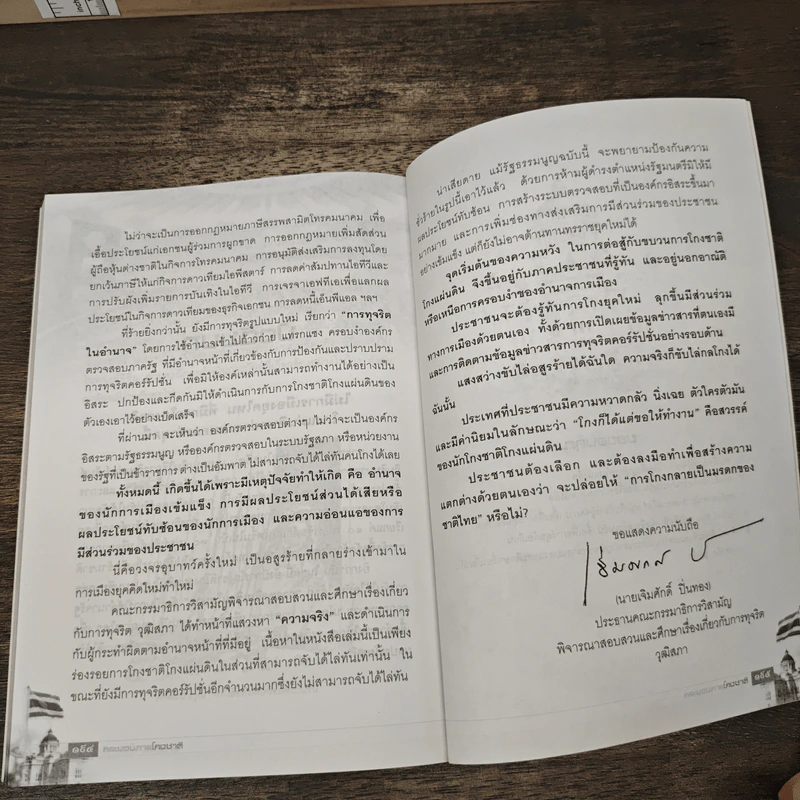 ไม่ว่าจะเป็นการออกกฎหมายภาษีสรรพสามิตโทรคมนาคม เพื่อ
เอื้อประโยชน์แก่เอกชนผู้ร่วมการผูกขาด การออกกฎหมายเพิ่มสัดส่วน
ผู้ถือหุ้นต่างชาติในกิจการโทรคมนาคม การอนุมัติส่งเสริมการลงทุนโดย
ยกเว้นภาษีให้แก่กิจการดาวเทียมไอพีสตาร์ การลดค่าสัมปทานไอทีวีและ
การปรับผังเพิ่มรายการบันเทิงในไอทีวี การเจรจาเอฟทีเอเพื่อแลกผล
ประโยชน์ในกิจการดาวเทียมของธุรกิจเอกชน การลดหนี้เอ็นพีแอล ฯลฯ
ที่ร้ายยิ่งกว่านั้น ยังมีการทุจริตรูปแบบใหม่ เรียกว่า “การทุจริต
ในอำนาจ” โดยการใช้อำนาจเข้าไปก้าวก่าย แทรกแซง ครอบงำองค์กร
ตรวจสอบภาครัฐ ที่มีอำนาจหน้าที่เกี่ยวข้องกับการป้องกันและปราบปราม
การทุจริตคอร์รัปชั่น เพื่อมิให้องค์เหล่านั้นสามารถทำงานได้อย่างเป็น
อิสระ ปกป้องและกีดกันมิให้ดำเนินการกับการโกงชาติโกงแผ่นดินของ
ตัวเองเอาไว้อย่างเบ็ดเสร็จ
ที่ผ่านมา จะเห็นว่า องค์กรตรวจสอบต่างๆ ไม่ว่าจะเป็นองค์กร
อิสระตามรัฐธรรมนูญ หรือองค์กรตรวจสอบในระบบรัฐสภา หรือหน่วยงาน
ของรัฐที่เป็นข้าราชการ ต่างเป็นอัมพาต ไม่สามารถจับได้ไล่ทันคนโกงได้เลย
ทั้งหมดนี้ เกิดขึ้นได้เพราะมีเหตุปัจจัยทำให้เกิด คือ อำนาจ
ของนักการเมืองเข้มแข็ง การมีผลประโยชน์ส่วนได้เสียหรือ
ผลประโยชน์ทับซ้อนของนักการเมือง และความอ่อนแอของการ
มีส่วนร่วมของประชาชน
นี่คือวงจรอุบาทว์ครั้งใหม่ เป็นอสูรร้ายที่กลายร่างเข้ามาใน
การเมืองยุคคิดใหม่ทำใหม่
คณะกรรมาธิการวิสามัญพิจารณาสอบสวนและศึกษาเรื่องเกี่ยว
กับการทุจริต วุฒิสภา ได้ทำหน้าที่แสวงหา “ความจริง” และดำเนินการ
กับผู้กระทำผิดตามอำนาจหน้าที่ที่มีอยู่ เนื้อหาในหนังสือเล่มนี้เป็นเพียง
ร่องรอยการโกงชาติโกงแผ่นดินในส่วนที่สามารถจับได้ไล่ทันเท่านั้น ใน
ขณะที่ยังมีการทุจริตคอร์รัปชั่นอีกจำนวนมากซึ่งยังไม่สามารถจับได้ไล่ทัน
๑๙๔
น่าเสียดาย แม้รัฐธรรมนูญฉบับนี้ จะพยายามป้องกันความ
ชั่วร้ายในรูปนี้เอาไว้แล้ว ด้วยการห้ามผู้ดำรงตำแหน่งรัฐมนตรีมิให้มี
ผลประโยชน์ทับซ้อน การสร้างระบบตรวจสอบที่เป็นองค์กรอิสระขึ้นมา
มากมาย และการเพิ่มช่องทางส่งเสริมการมีส่วนร่วมของประชาชน
อย่างเข้มแข็ง แต่ก็ยังไม่อาจต้านทานทรราชยุคใหม่ได้
จุดเริ่มต้นของความหวัง ในการต่อสู้กับขบวนการโกงชาติ
โกงแผ่นดิน จึงขึ้นอยู่กับภาคประชาชนที่รู้ทัน และอยู่นอกอาณัติ
หรือเหนือการครอบงำของอำนาจการเมือง
ประชาชนจะต้องรู้ทันการโกงยุคใหม่ ลุกขึ้นมีส่วนร่วม
ทางการเมืองด้วยตนเอง ทั้งด้วยการเปิดเผยข้อมูลข่าวสารที่ตนเองมี
และการติดตามข้อมูลข่าวสารการทุจริตคอร์รัปชั่นอย่างรอบด้าน
แสงสว่างขับไล่อสูรร้ายได้ฉันใด ความจริงก็ขับไล่กลโกงได้
ฉันนั้น
ประเทศที่ประชาชนมีความหวาดกลัว นิ่งเฉย ตัวใครตัวมัน
และมีค่านิยมในลักษณะว่า “โกงก็ได้แต่ขอให้ทำงาน” คือสวรรค์
ของนักโกงชาติโกงแผ่นดิน
ประชาชนต้องเลือก และต้องลงมือทำเพื่อสร้างความ
แตกต่างด้วยตนเองว่า จะปล่อยให้ “การโกงกลายเป็นมรดกของ
ชาติไทย” หรือไม่?
ขอแสดงความนับถือ
(นายเจิมศักดิ์ ปิ่นทอง)
ประธานคณะกรรมาธิการวิสามัญ
พิจารณาสอบสวนและศึกษาเรื่องเกี่ยวกับการทุจริต
วุฒิสภา
๑๙๕